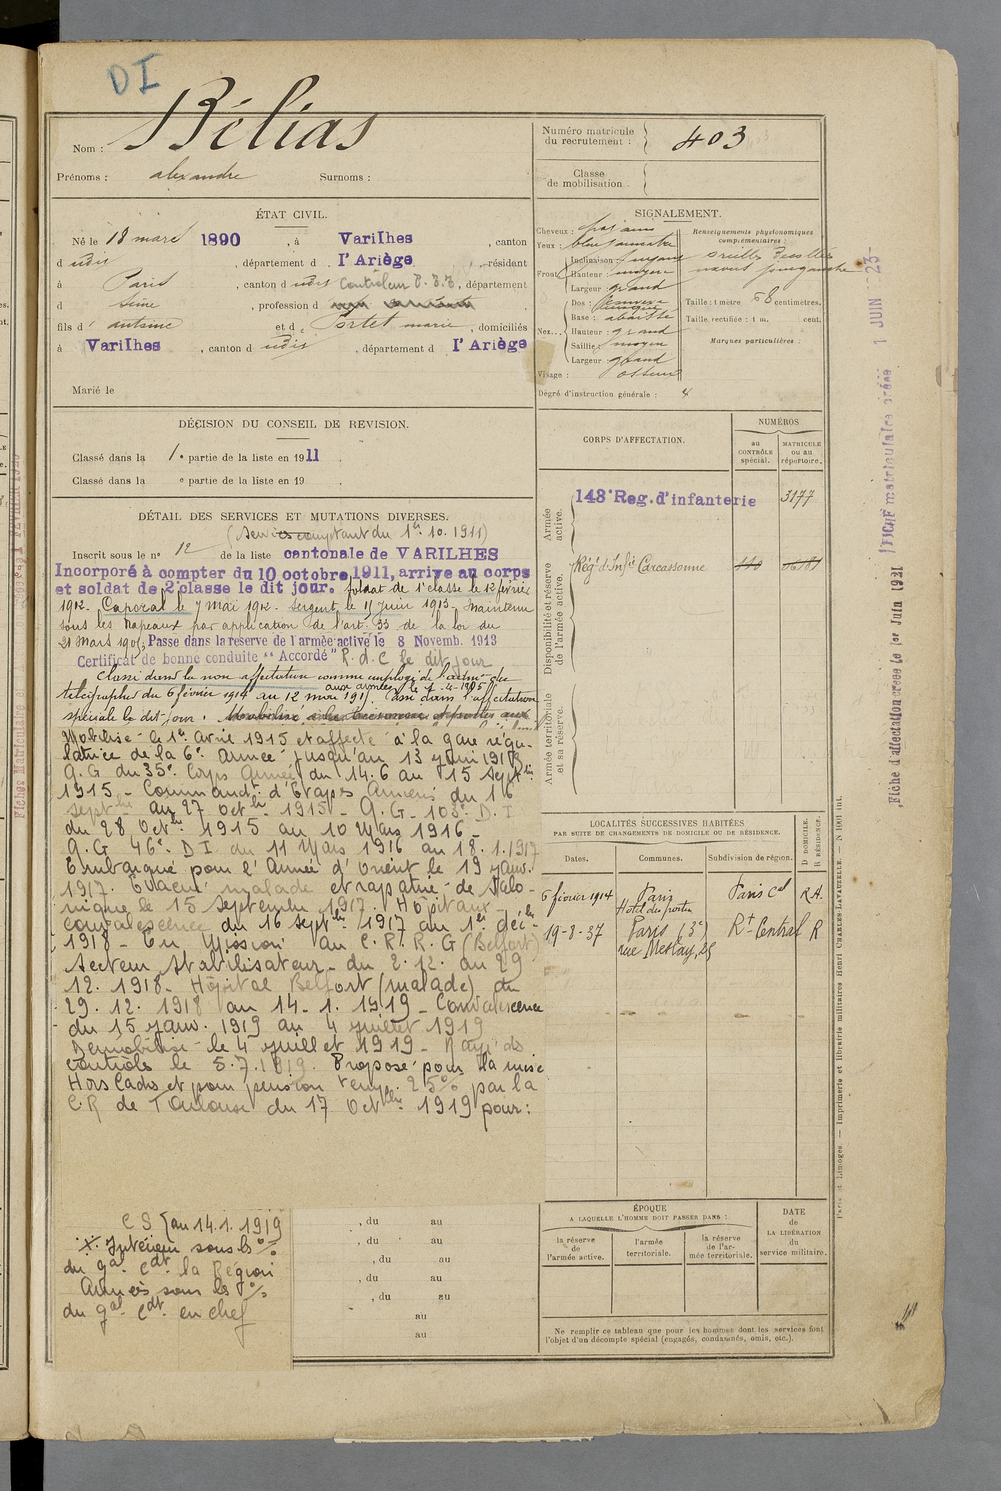 DI
Nom : Bélias
Prénoms : alexandre Surnoms :
Numéro matricule du recrutement : 403
Classe de mobilisation.
ÉTAT CIVIL.
Né le 18 mars 1890, à Varilhes, canton
d udit, département d l'Ariège, résidant
à Paris, canton d udit Contrôleur P.T.T., département
d Seine, profession d
fils d' antoine et de Portet marie, domiciliés
à Varilhes, canton d udit, département d l'Ariège
Marié le
SIGNALEMENT.
Cheveux :
Yeux :
Renseignements physionomiques complémentaires :
Front
Inclinaison : fuyant
Hauteur : moyen
Largeur : grand
Nez
Dos :
Base : abaissé
Hauteur : grand
Saillie : moyen
Largeur : grand
Visage : osseux
Taille : 1 mètre 68 centimètres.
Taille rectifiée : 1 m. cent.
Marques particulières :
Degré d'instruction générale : 4
DÉCISION DU CONSEIL DE REVISION.
Classé dans la 1e partie de la liste en 1911.
Classé dans la e partie de la liste en 19 .
CORPS D'AFFECTATION.
NUMÉROS
au CONTRÔLE spécial.
MATRICULE ou au répertoire.
Armée active.
143e Reg. d'infanterie 3177
Disponibilité et réserve de l'armée active.
Régt d'Infie Carcassonne
Armée territoriale et sa réserve.
DÉTAIL DES SERVICES ET MUTATIONS DIVERSES.
(Services comptant du 1er 10. 1911)
Inscrit sous le n° 12 de la liste cantonale de VARILHES
Incorporé à compter du 10 octobre 1911, arrivé au corps
et soldat de 2e classe le dit jour. Soldat de 1e classe le 12 février
1912. Caporal le 7 mai 1912. Sergent le 11 juin 1913. Maintenu
sous les drapeaux par application de l'art. 33 de la loi du
21 mars 1905, Passé dans la réserve de l'armée active le 8 Novemb. 1913
Certificat de bonne conduite "Accordé" R. d. C le dit jour
Classé dans la non affectation comme employé de l'admon des
télégraphes du 6 février 1914 au 12 mai 1917. Passé dans l'affectation
aux armées le 1-4-1915
spéciale le dit jour.
Mobilisé le 1er Avril 1915 et affecté à la gare régu-
latrice de la 6e Armée jusqu'au 13 juin 1915
Q.G du 35e Corps Armée du 14.6 au 15 Septbre
1915 - Commandt d'Etapes Amiens du 16
Septbre au 27 Octbre 1915 - Q.G. 103e D.I
du 28 Octbre 1915 au 10 Mars 1916 -
Q.G 46e D I du 11 Mars 1916 au 18.1.1917
Embarqué pour l'Armée d'Orient le 19 janv.
1917. Evacué malade et rapatrié de Salo-
nique le 15 Septembre 1917. Hôpitaux
convalescence du 16 Septbre 1917 au 1er décbre
1918 - En Mission au C.R.R.G (Belfort)
Secteur Stabilisateur - du 2.12. au 29
12. 1918 - Hôpital Belfort (malade) du
29. 12. 1918 au 14. 1. 1919 - Convalescence
du 15 janv. 1919 au 4 juillet 1919
Démobilisé le 4 juillet 1919 - Rayé des
contrôles le 5.7.1919. Proposé pour la mise
Hors Cadres et pour pension temp. 25% par la
C.R de Toulouse du 17 Octbre 1919 pour :
C S (au 14.1.1919
Intérieur sous les o/
du gal Cdt la Région
Armées sous les o/
du gal Cdt en chef
, du au
, du au
, du au
, du au
, du au
au
au
LOCALITÉS SUCCESSIVES HABITÉES
PAR SUITE DE CHANGEMENTS DE DOMICILE OU DE RÉSIDENCE.
Dates. Communes. Subdivision de région. D DOMICILE. R RÉSIDENCE.
6 février 1914 Paris Paris Cal R.A.
Hôtel des postes
19-8-37 Paris (3e) Rt Central R
rue Meslay, 25
ÉPOQUE
A LAQUELLE L'HOMME DOIT PASSER DANS :
la réserve de l'armée active.
l'armée territoriale.
la réserve de l'armée territoriale.
DATE de LA LIBÉRATION du service militaire.
Ne remplir ce tableau que pour les hommes dont les services font
l'objet d'un décompte spécial (engagés, condamnés, omis, etc.).
Paris et Limoges. — Imprimerie et librairie militaires Henri CHARLES-LAVAUZELLE. — N 1001 int.
FICHE matriculaire créée 1 JUIN 23
Fiche d'affectation créée le 1er Juin 1921